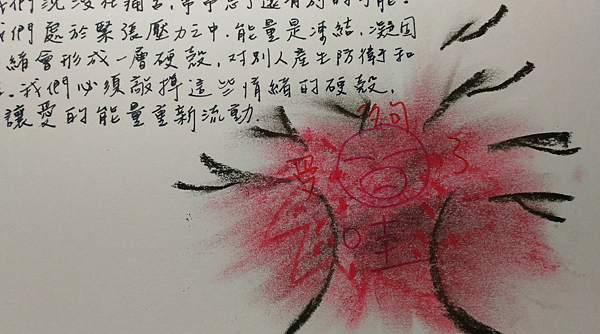 我們沉浸在痛苦,常常忘了還有別的可能。
我們處於緊張壓力之中,能量是凍結,凝固
緒會形成一層硬殼,對別人產生防衛和
。我們必須敲掉這些情緒的硬殼,
讓愛的能量重新流動.
夠
受 了
哇